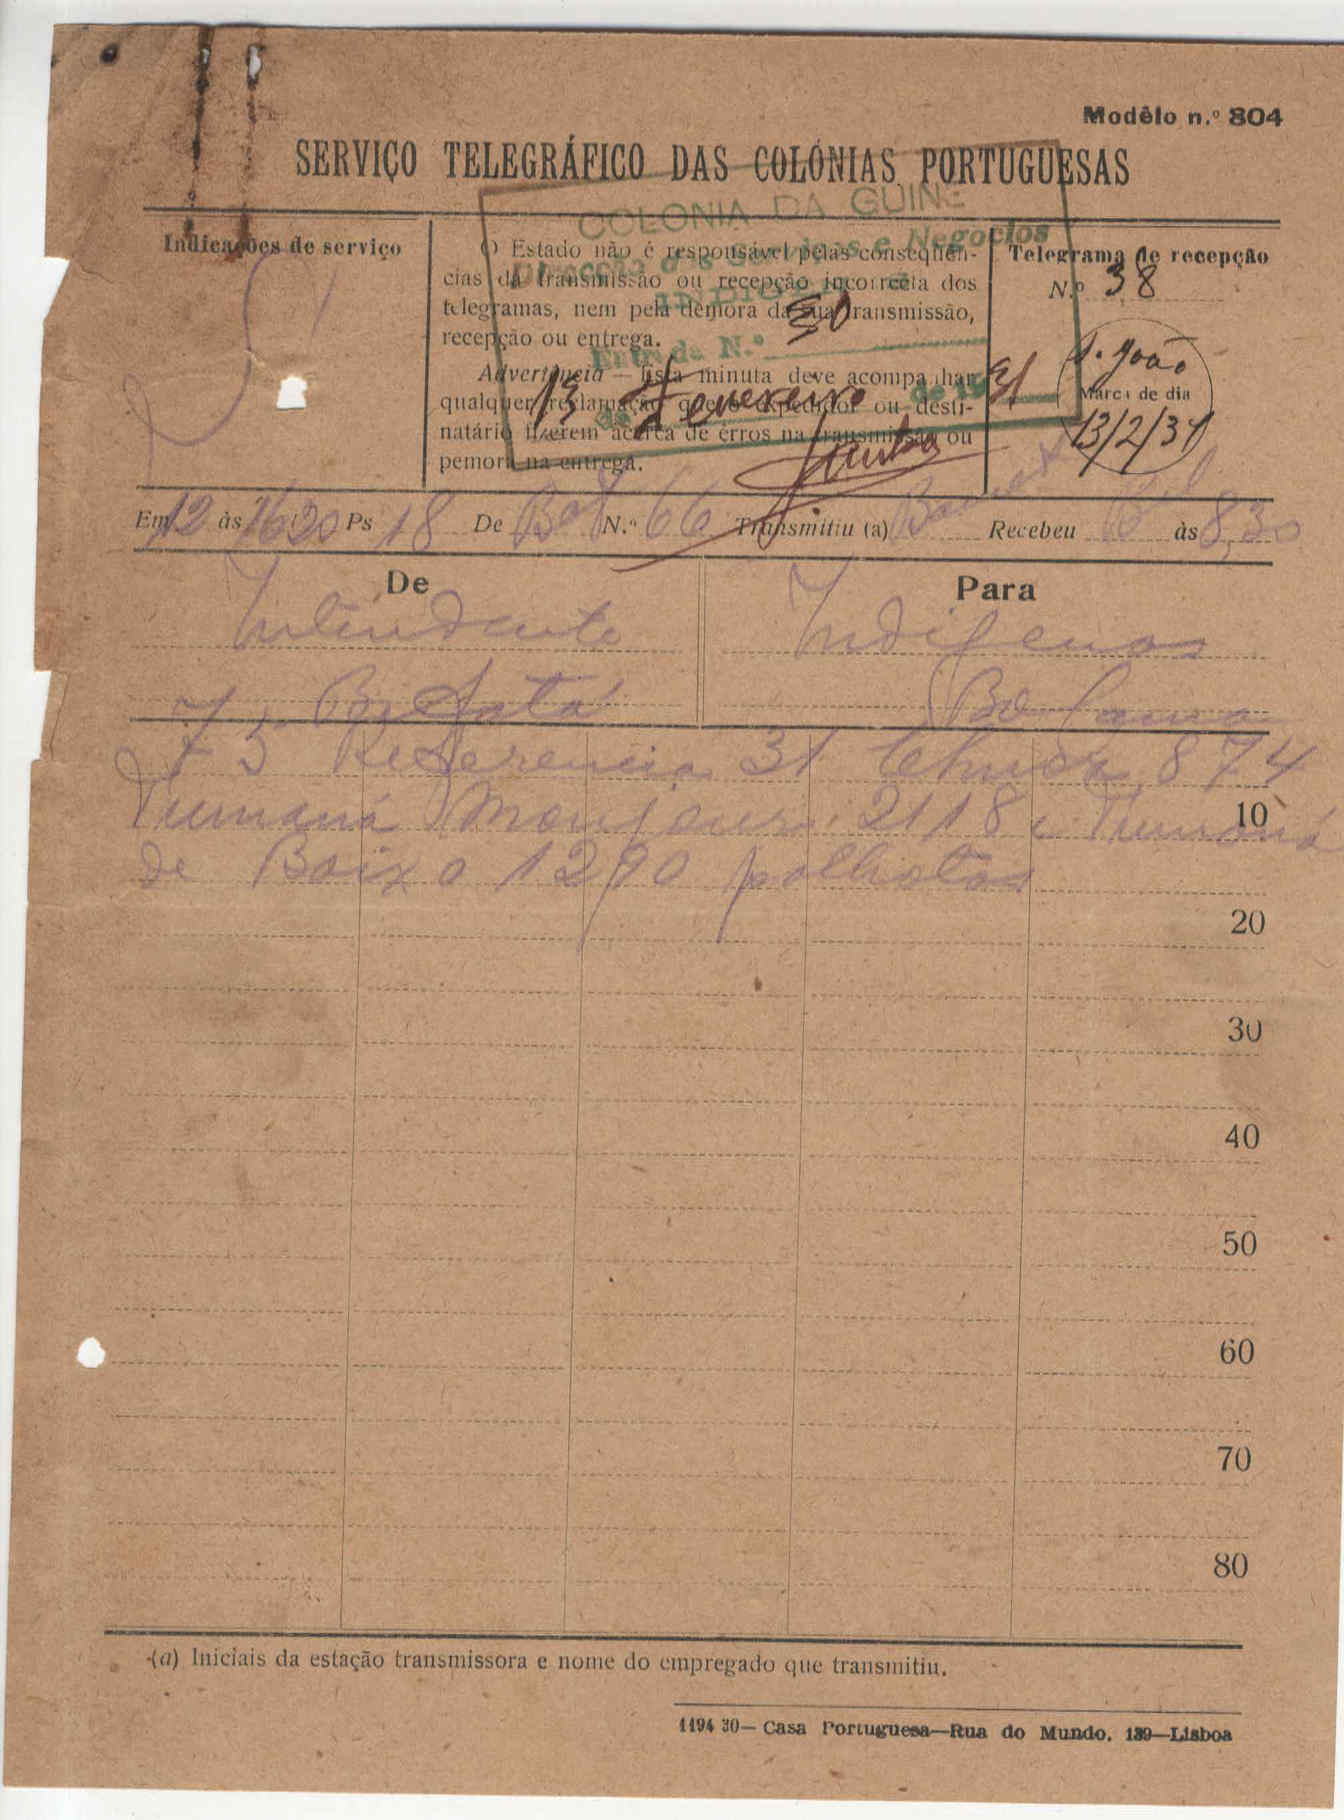 Modêlo n.º 804
SERVIÇO TELEGRÁFICO DAS COLÓNIAS PORTUGUESAS
Indicações de serviço
O Estado não é responsável pelas conseqüên-
cias da transmissão ou recepção incorrecta dos
telegramas, nem pela demora da sua transmissão,
recepção ou entrega.
Advertência — Esta minuta deve acompanhar
qualquer reclamação que o expedidor ou desti-
natário fizerem àcêrca de erros na transmissão ou
pemora na entrega.
COLONIA DA GUINÉ
Direcção dos Serviços e Negocios
INDIGENAS
Entrada N.º 30
13 de Fevereiro de 1931
Telegrama de recepção
N.º 38
S. João
Marca de dia
13/2/31
Em 12 às 16,20 Ps 18 De Baf N.º 66 Transmitiu (a) Recebeu às 8,30
De
Intendente
Bafatá
Para
Indigenas
Bolama
75 Referencia 31 874
10
de Baixo 1290 palhotas
20
30
40
50
60
70
80
(a) Iniciais da estação transmissora e nome do empregado que transmitiu.
1194 30—Casa Portuguesa—Rua do Mundo, 139—Lisboa